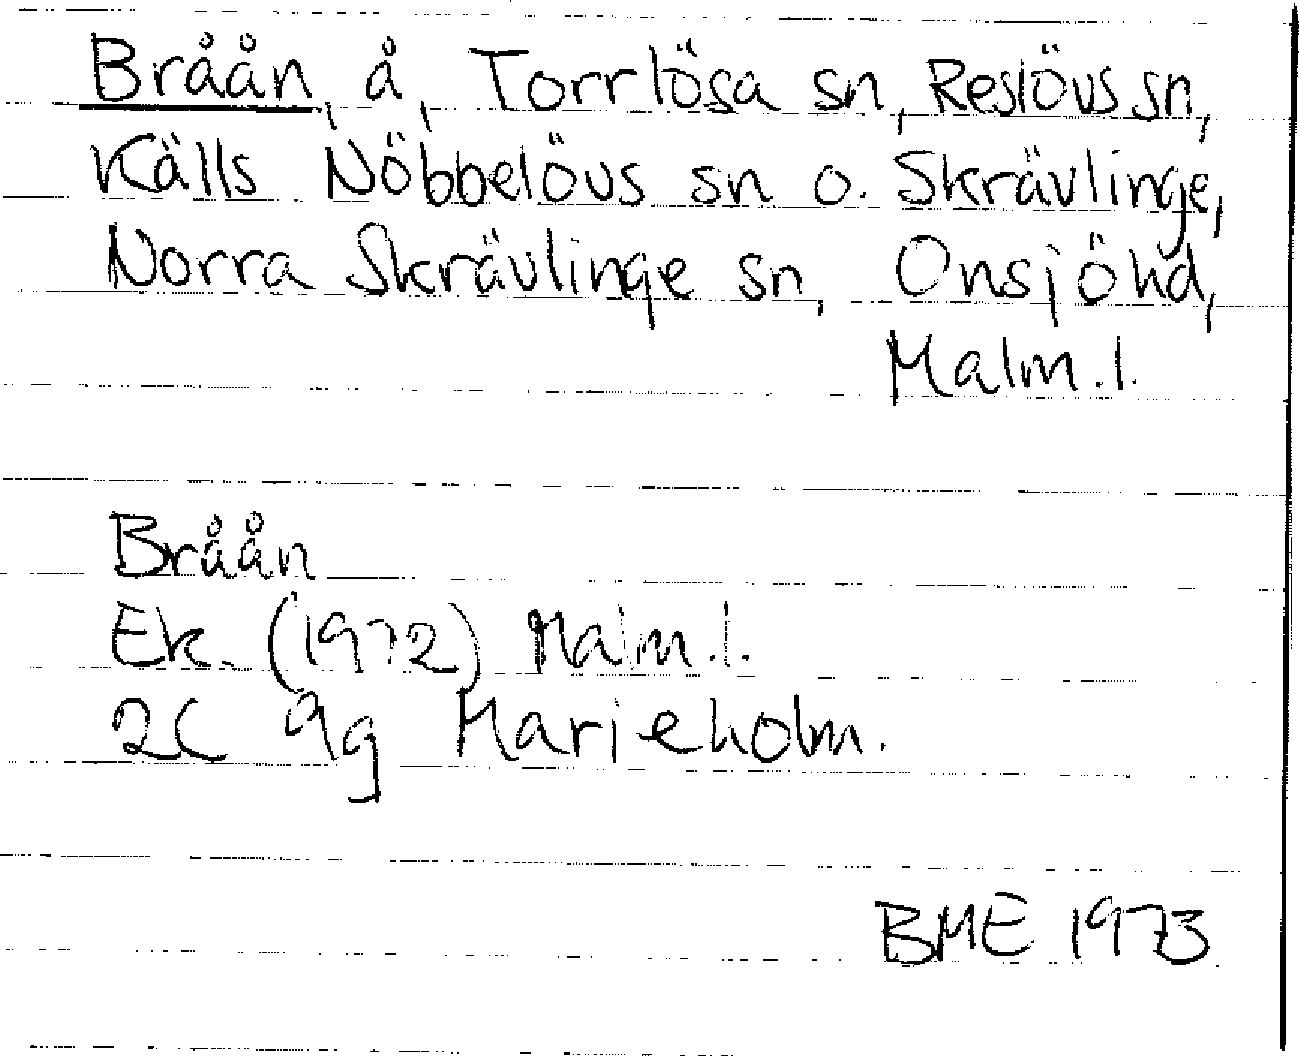 Bråån, å, Torrlösa sn, Reslövs sn,
Källs Nöbbelövs sn o. Skrävlinge,
Norra Skrävlinge sn, Onsjö hd,
Malm.l.
Bråån
Ek. (1972) Malm.l.
2C 9g Marieholm.
BME 1973